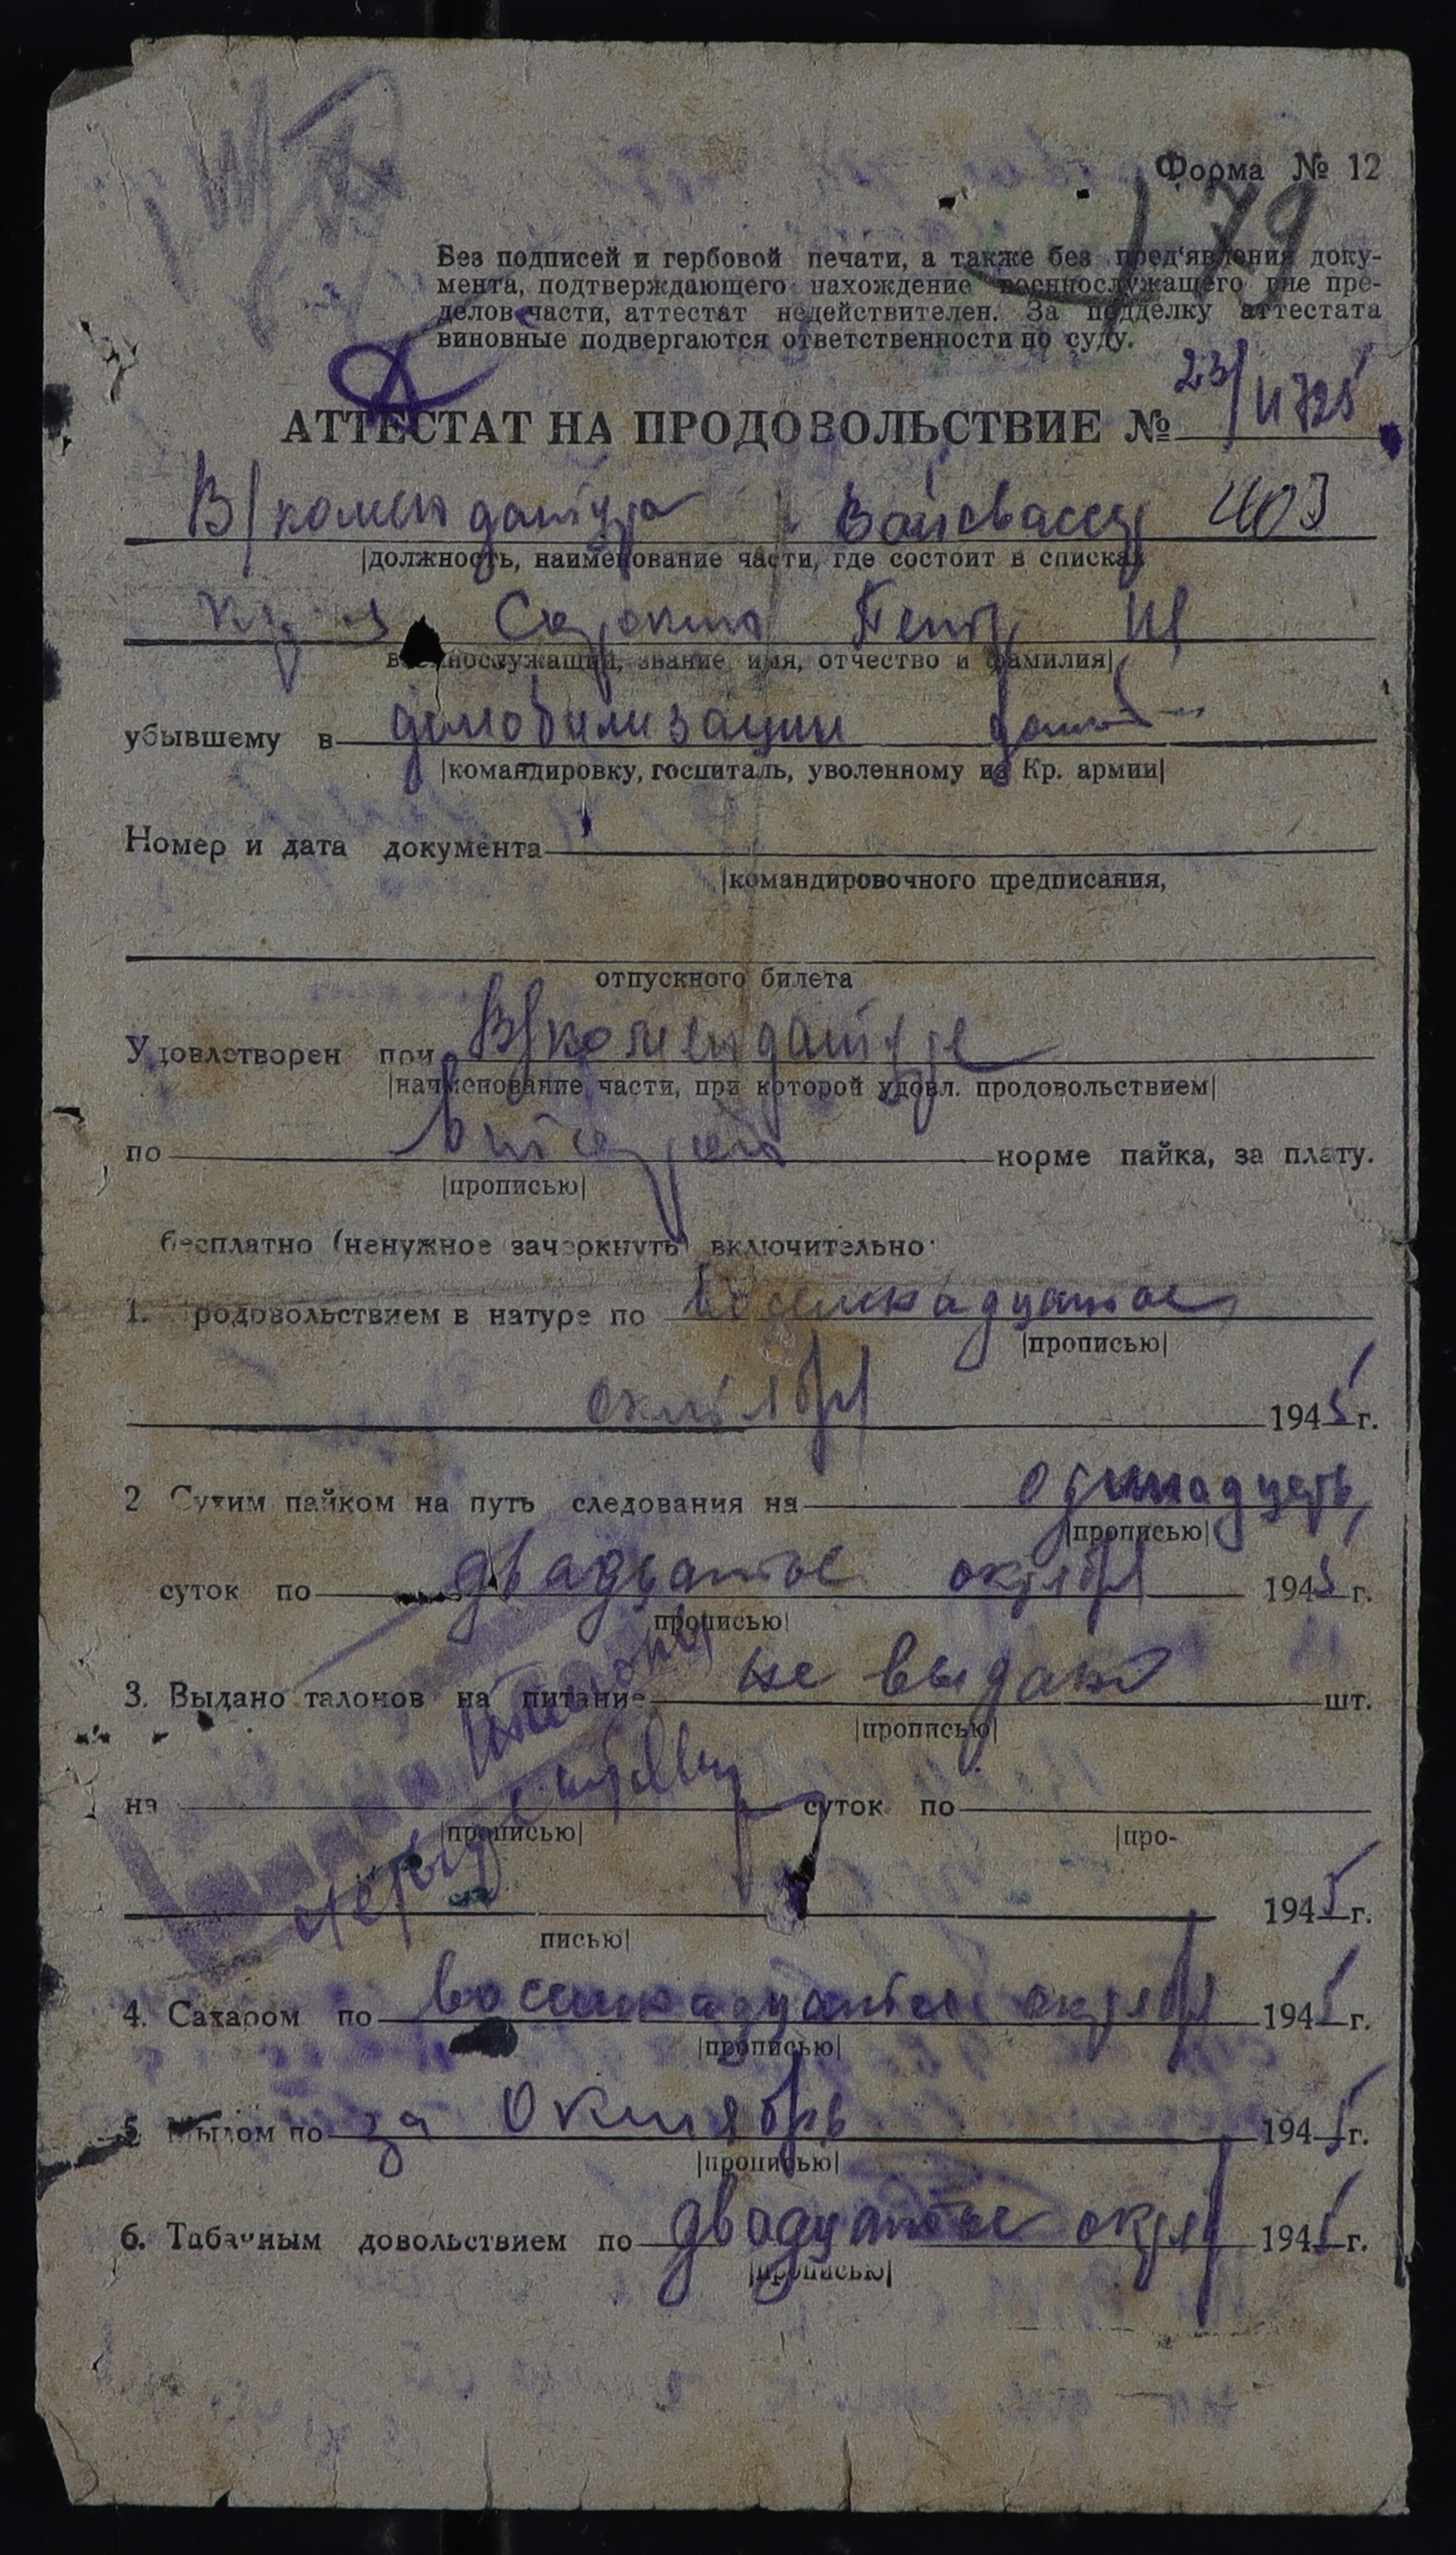 Форма № 12
179
Без подписей и гербовой печати, а также без пред'явления доку-
мента, подтверждающего нахождение военнослужащего вне пре-
делов части, аттестат недействителен. За подделку аттестата
виновные подвергаются ответственности по суду.
АТТЕСТАТ НА ПРОДОВОЛЬСТВИЕ № 23/
В/комендатура Вайсвассер 403
|должность, наименование части, где состоит в списках
Сорокин Петр
военнослужащий, звание, имя, отчество и фамилия|
убывшему в демобилизации
|командировку, госпиталь, уволенному из Кр. армии|
Номер и дата документа
|командировочного предписания,
отпускного билета
Удовлетворен при В/комендатуре
|наименование части, при которой удовл. продовольствием|
по норме пайка, за плату.
|прописью|
бесплатно (ненужное зачеркнуть) включительно:
1. родовольствием в натуре по восемнадцатое
|прописью|
октября 1945 г.
2 Сухим пайком на путь следования на одинадцать
|прописью|
суток по двадцатое октября 1945 г.
прописью|
3. Выдано талонов на питание не выдано шт.
|прописью|
на суток по
|прописью| |про-
1945 г.
письью|
4. Сахаром по восемнадцатое октября 1945 г.
|прописью|
5 Мылом по за Октябрь 1945 г.
|прописью|
6. Табачным довольствием по двадцатое октяб 1945 г.
|прописью|